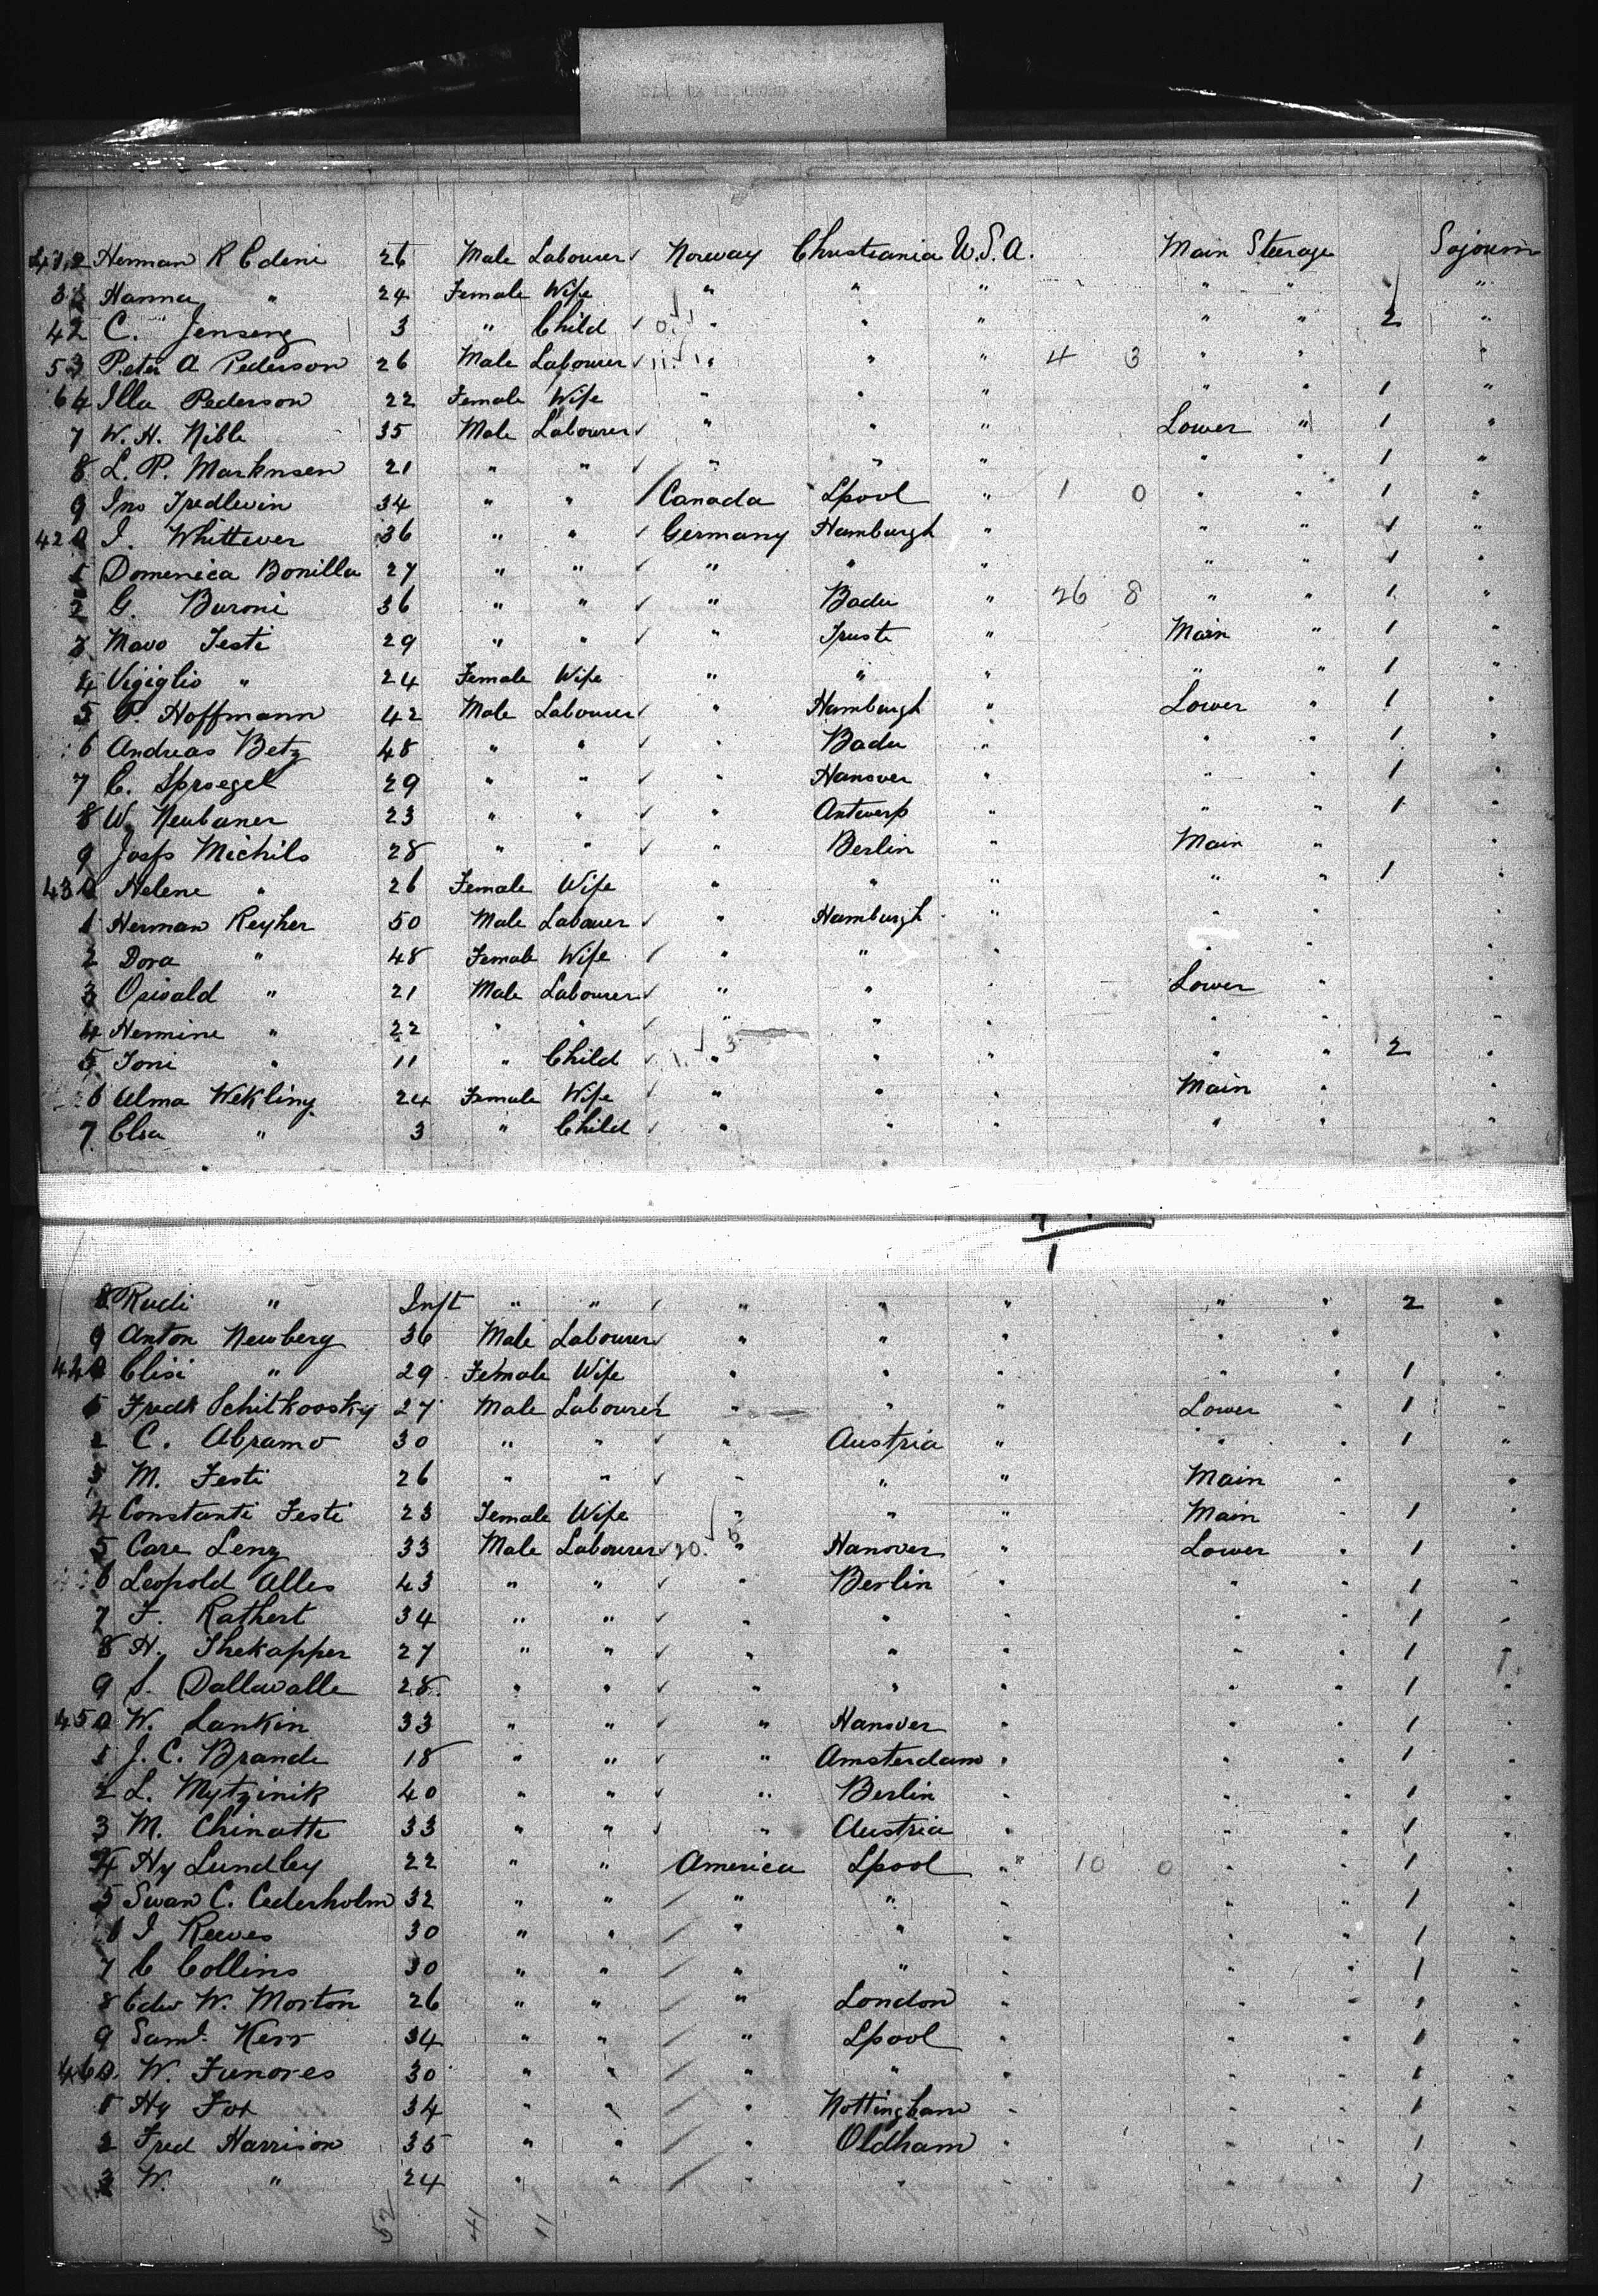 412 Herman R Edeni 26 Male Labourer Norway Christiania U.S.A. Main Steerage Sojourn
3 Hanna " 24 Female Wife " " " " " "
42 C. Jenseng 3 " Child " " " " " 2 "
53 Peter A Pederson 26 Male Labourer 11 " " " 4 3 " " "
64 Illa Pederson 22 Female Wife " " " " " 1 "
7 W. H. Nible 35 Male Labourer " " " Lower " 1 "
8 L. P. Marknsen 21 " " " " " " " 1 "
9 Jno Fredlevin 34 " " Canada Lpool " 1 0 " " 1 "
420 J. Whittever 36 " " Germany Hamburgh " " " 1 "
1 Domenica Bonilla 27 " " " " " " " 1 "
2 G. Buroni 36 " " " Baden " 26 8 " " 1 "
3 Mavo Testi 29 " " " Truste " Main " 1 "
4 Vigiglio " 24 Female Wife " " " " " 1 "
5 P. Hoffmann 42 Male Labourer " Hamburgh " Lower " 1 "
6 Andreas Betz 48 " " " Baden " " " 1 "
7 C. Sproegel 29 " " " Hanover " " " 1 "
8 W. Neubaner 23 " " " Antwerp " " " 1 "
9 Josf Michils 28 " " " Berlin " Main " "
430 Helene " 26 Female Wife " " " " " 1 "
1 Herman Reyher 50 Male Labourer " Hamburgh " " " "
2 Dora " 48 Female Wife " " " " " "
3 Osivald " 21 Male Labourer " " " Lower " "
4 Hermine " 22 " " " " " " " "
5 Toni " 11 " Child " " " " " 2 "
6 Alma Wekling 24 Female Wife " " " Main " "
7 Elsa " 3 " Child " " " " " "
1
8 Rudi " Inft " " " " " " " 2 "
9 Anton Newberg 36 Male Labourer " " " " " "
440 Elisi " 29 Female Wife " " " " " 1 "
1 Fredk Schitkoosky 27 Male Labourer " " " Lower " 1 "
2 C. Abramo 30 " " " Austria " " " 1 "
3 M. Festi 26 " " " " " Main " "
4 Constanti Festi 23 Female Wife " " " Main " 1 "
5 Care Lenz 33 Male Labourer 20 " Hanover " Lower " 1 "
6 Leopold Alles 43 " " " Berlin " " " 1 "
7 F. Rathert 34 " " " " " " " 1 "
8 H. Thekapper 27 " " " " " " " 1 "
9 S. Dallavalle 28 " " " " " " " 1 "
450 W. Lankin 33 " " " Hanover " " " 1 "
1 J. C. Brande 18 " " " Amsterdam " " " 1 "
2 L. Mytzinik 40 " " " Berlin " " " 1 "
3 M. Chinatti 33 " " " Austria " " " 1 "
4 Hy Lundley 22 " " America Lpool " 10 0 " " 1 "
5 Swan C. Cederholm 32 " " " " " " " 1 "
6 J Reeves 30 " " " " " " " 1 "
7 C Collins 30 " " " " " " " 1 "
8 Edw W. Morton 26 " " " London " " " 1 "
9 Saml. Kerr 34 " " " Lpool " " " 1 "
460 W. Funores 30 " " " " " " " 1 "
1 Hy Fox 34 " " " Nottingham " " " 1 "
2 Fred Harrison 35 " " " Oldham " " " 1 "
3 W. " 24 " " " " " " " 1 "
52 41 11